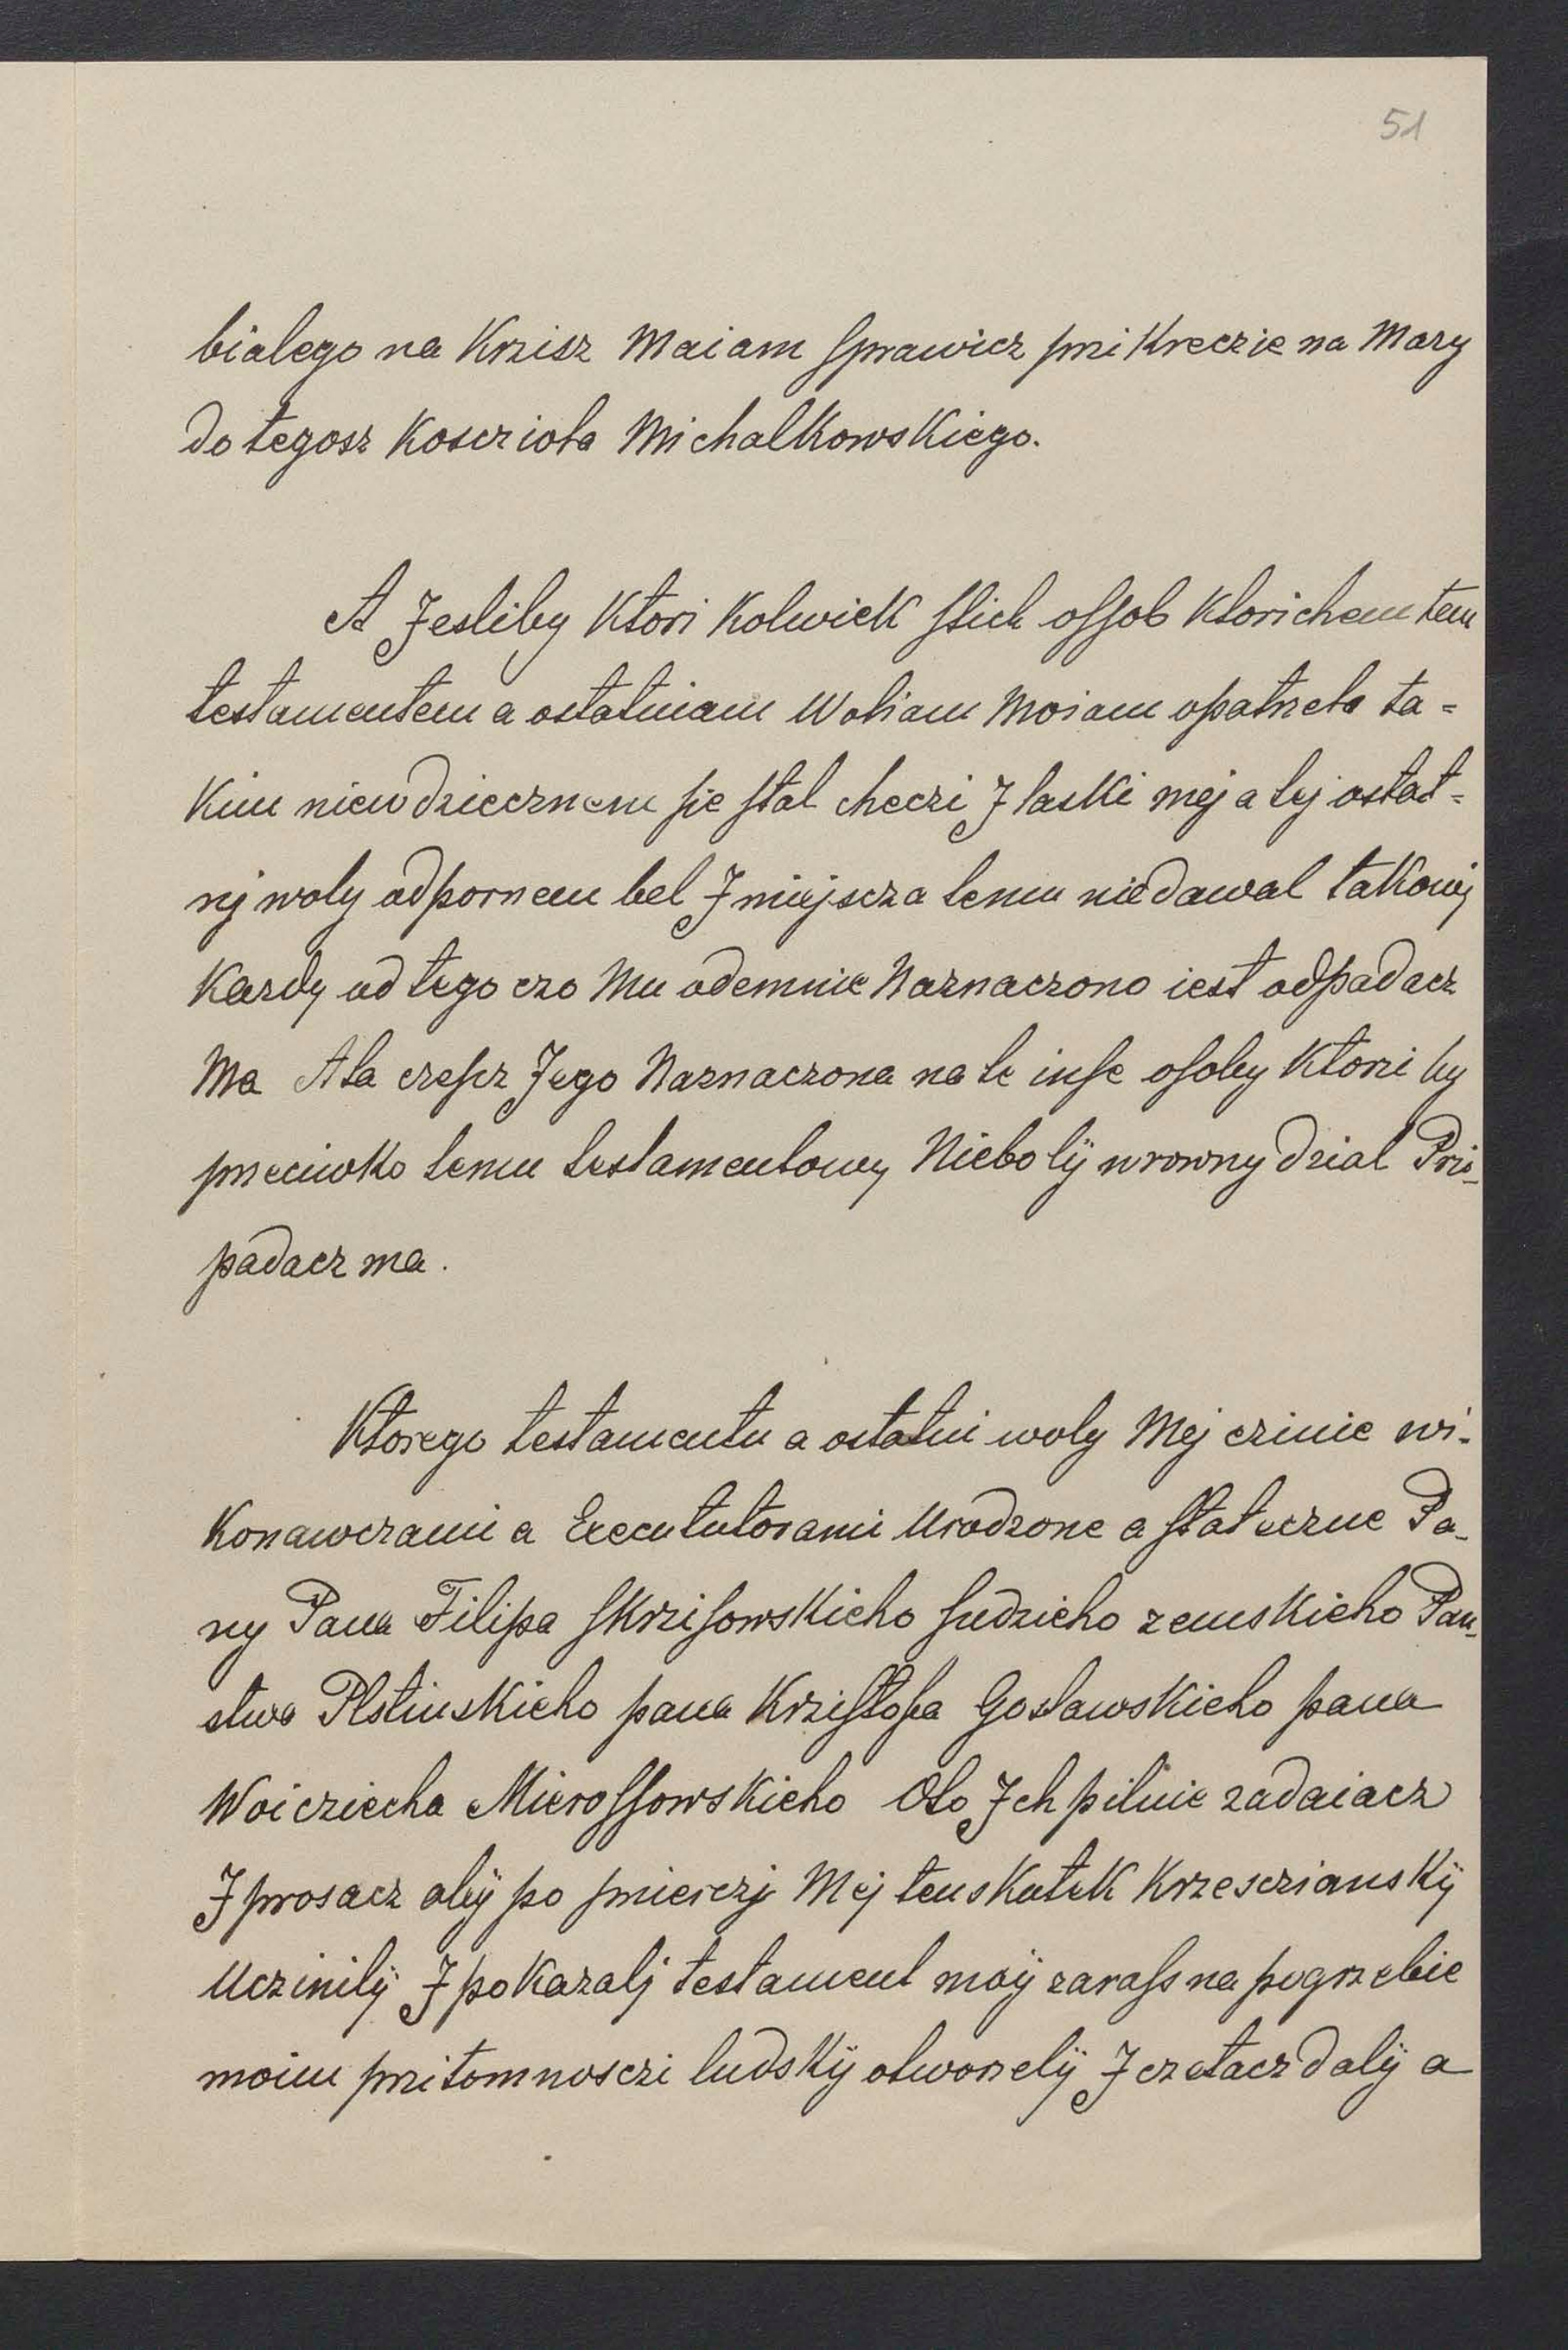 51
bialego na Krzisz Maiam Sprawicz przi Kreczie na Mary
do tegosz Koscziola Michalkowskiego.
A Jesliby Ktori Kolwiek stich ossob Ktorichem tem
testamentem a ostatniam Woliam Moiam opatrzela ta=
kim niewdziecznem sie stal checzi J laski mej a tej ostat=
nj woly odpornem bel J miejscza temu niedawal takowj
Kazdy od tego czo Mu odemnie Naznaczono iest odpadacz
Ma A ta czescz Jego Naznaczona na te inse osoby Ktorzi by
przeciwko temu testamentowy Niebolÿ wrowny dzial Pris-
padacz ma.
Ktorego testamentu a ostatni woly Mej czinie wi-
Konawczami a Execututorami Urodzone a stateczne Pa-
ny Pana Filipa Skrzisowskieho sudzieho zemskieho Pan-
stwa Plstinskieho pana Krzistofa Goslawskieho pana
Woicziecha Mierossowskieho Oto Jch pilnie zadaiacz
J prosacz abÿ po smierczj Mej ten skutek Krzesczianskÿ
Uczinilÿ J pokazalj testament moÿ zarass na pogrzebie
moim przitomnosczi ludskÿ otworzelÿ J czetacz dalÿ a